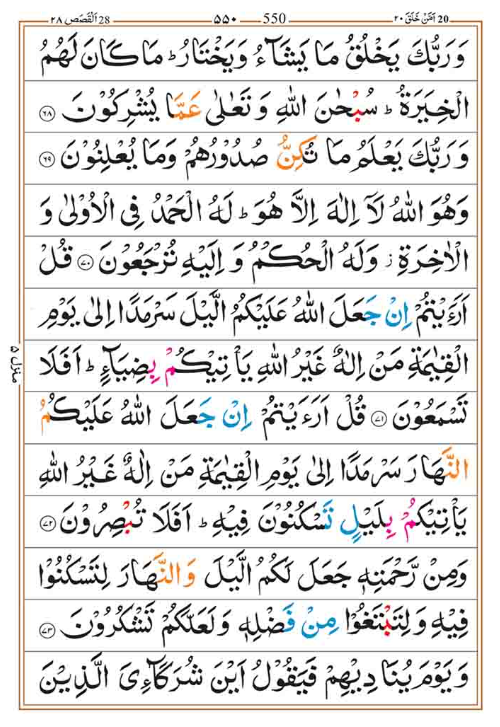 ٱلْقَصَص ٢٨ 28 ٥٥٠ 550 اَمَّنْ خَلَقَ ٢٠ 20
وَرَبُّكَ يَخْلُقُ مَا يَشَآءُ وَيَخْتَارُ ؕ مَا كَانَ لَهُمُ
الْخِيَرَةُ ؕ سُبْحٰنَ اللّٰهِ وَ تَعٰلٰى عَمَّا يُشْرِكُوْنَ ﴿۶۸﴾
وَ رَبُّكَ يَعْلَمُ مَا تُكِنُّ صُدُوْرُهُمْ وَمَا يُعْلِنُوْنَ ﴿۶۹﴾
وَهُوَ اللّٰهُ لَاۤ اِلٰهَ اِلَّا هُوَ ؕ لَهُ الْحَمْدُ فِى الْاُوْلٰى وَ
الْاٰخِرَةِ ؗ وَلَهُ الْحُكْمُ وَ اِلَيْهِ تُرْجَعُوْنَ ﴿۷۰﴾ قُلْ
اَرَءَيْتُمْ اِنْ جَعَلَ اللّٰهُ عَلَيْكُمُ الَّيْلَ سَرْمَدًا اِلٰى يَوْمِ
الْقِيٰمَةِ مَنْ اِلٰهٌ غَيْرُ اللّٰهِ يَاْتِيْكُمْ بِضِيَآءٍ ؕ اَفَلَا
تَسْمَعُوْنَ ﴿۷۱﴾ قُلْ اَرَءَيْتُمْ اِنْ جَعَلَ اللّٰهُ عَلَيْكُمُ
النَّهَارَ سَرْمَدًا اِلٰى يَوْمِ الْقِيٰمَةِ مَنْ اِلٰهٌ غَيْرُ اللّٰهِ
يَاْتِيْكُمْ بِلَيْلٍ تَسْكُنُوْنَ فِيْهِ ؕ اَفَلَا تُبْصِرُوْنَ ﴿۷۲﴾
وَمِنْ رَّحْمَتِهٖ جَعَلَ لَكُمُ الَّيْلَ وَالنَّهَارَ لِتَسْكُنُوْا
فِيْهِ وَلِتَبْتَغُوْا مِنْ فَضْلِهٖ وَلَعَلَّكُمْ تَشْكُرُوْنَ ﴿۷۳﴾
وَ يَوْمَ يُنَادِيْهِمْ فَيَقُوْلُ اَيْنَ شُرَكَآءِىَ الَّذِيْنَ
منزل ۵